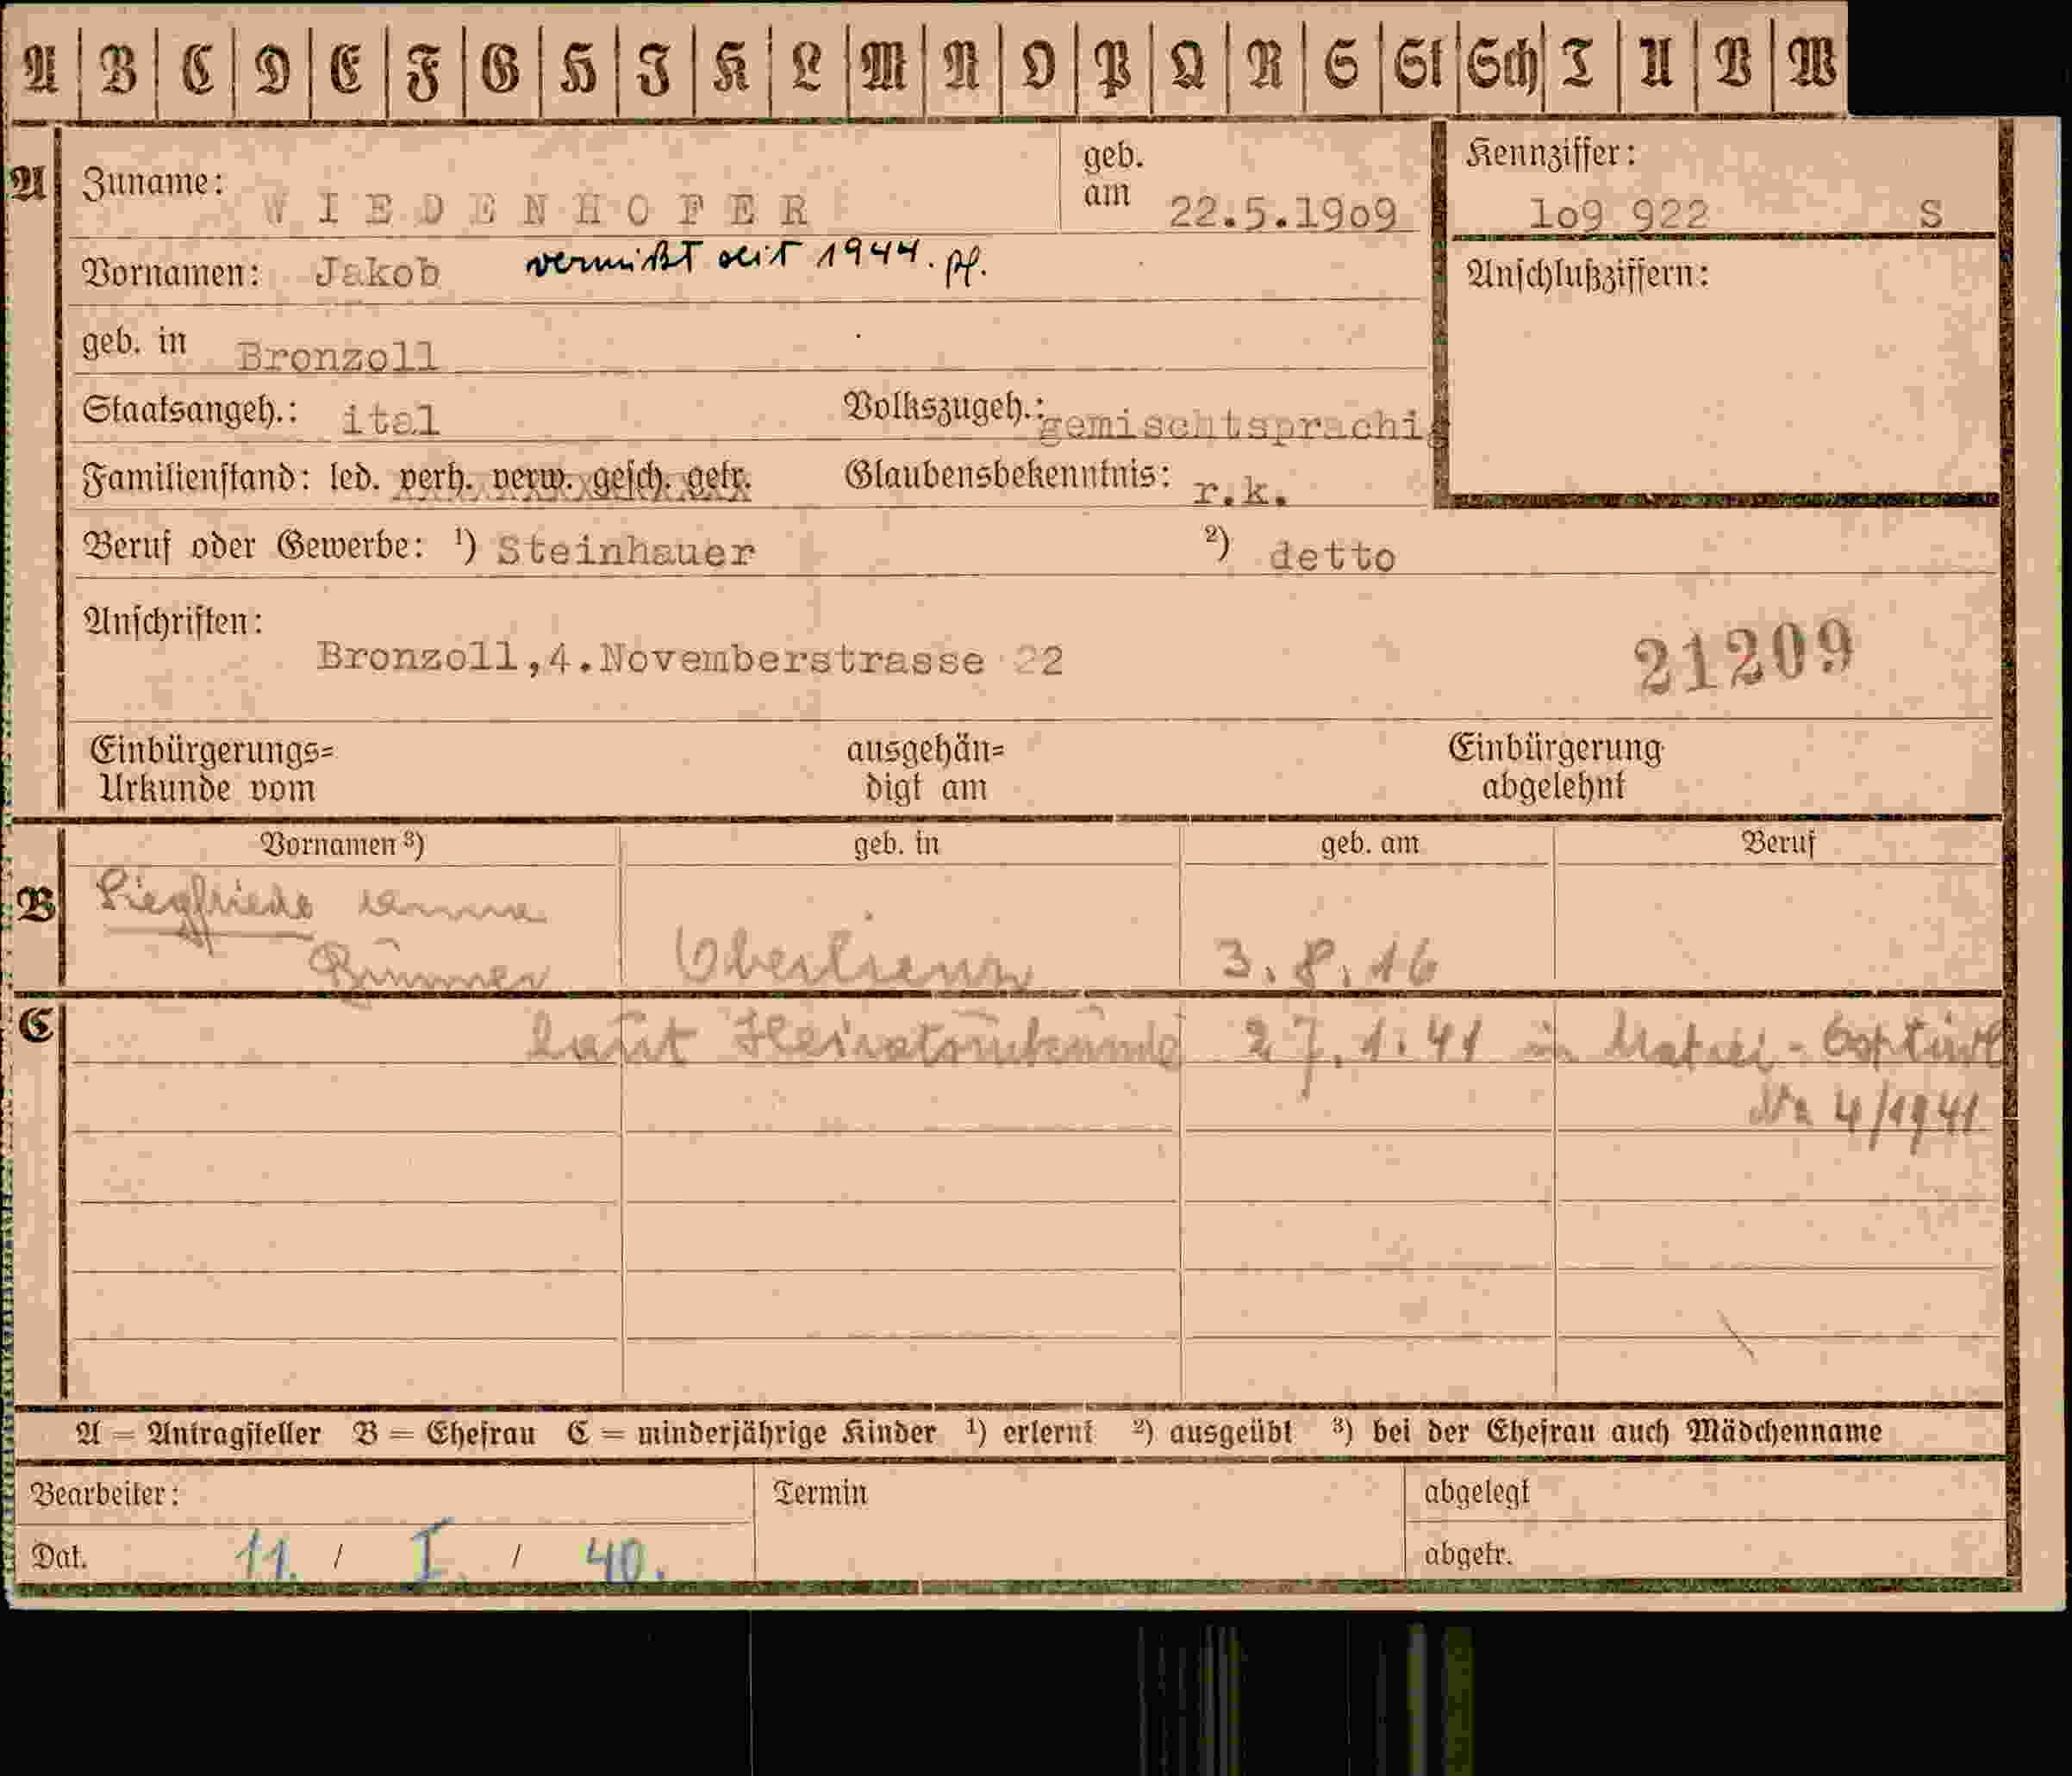 A B C D E F G H J K L M N O P Q R S St Sch T U V W
A Zuname: WIEDENHOFER geb. am 22.5.19o9 Kennziffer: 1o9 922 S
Vornamen: Jakob vermißt seit 1944. pf. Anschlußziffern:
geb. in Bronzoll
Staatsangeh.: ital Volkszugeh.: gemischtsprachig
Familienstand: led. verh. verw. gesch. getr. Glaubensbekenntnis: r.k.
Beruf oder Gewerbe: ¹) Steinhauer ²) detto
Anschriften:
Bronzoll,4.Novemberstrasse 22 21209
Einbürgerungs= ausgehän= Einbürgerung
Urkunde vom digt am abgelehnt
Vornamen ³) geb. in geb. am Beruf
B Siegfriede
Oberlienz 3.8.16
C laut Heiratsurkunde 27.1.41 in Matrei - Osttirol
Nr 4/1941
A = Antragsteller B = Ehefrau C = minderjährige Kinder ¹) erlernt ²) ausgeübt ³) bei der Ehefrau auch Mädchenname
Bearbeiter: Termin abgelegt
Dat. 11. / I. / 40. abgetr.